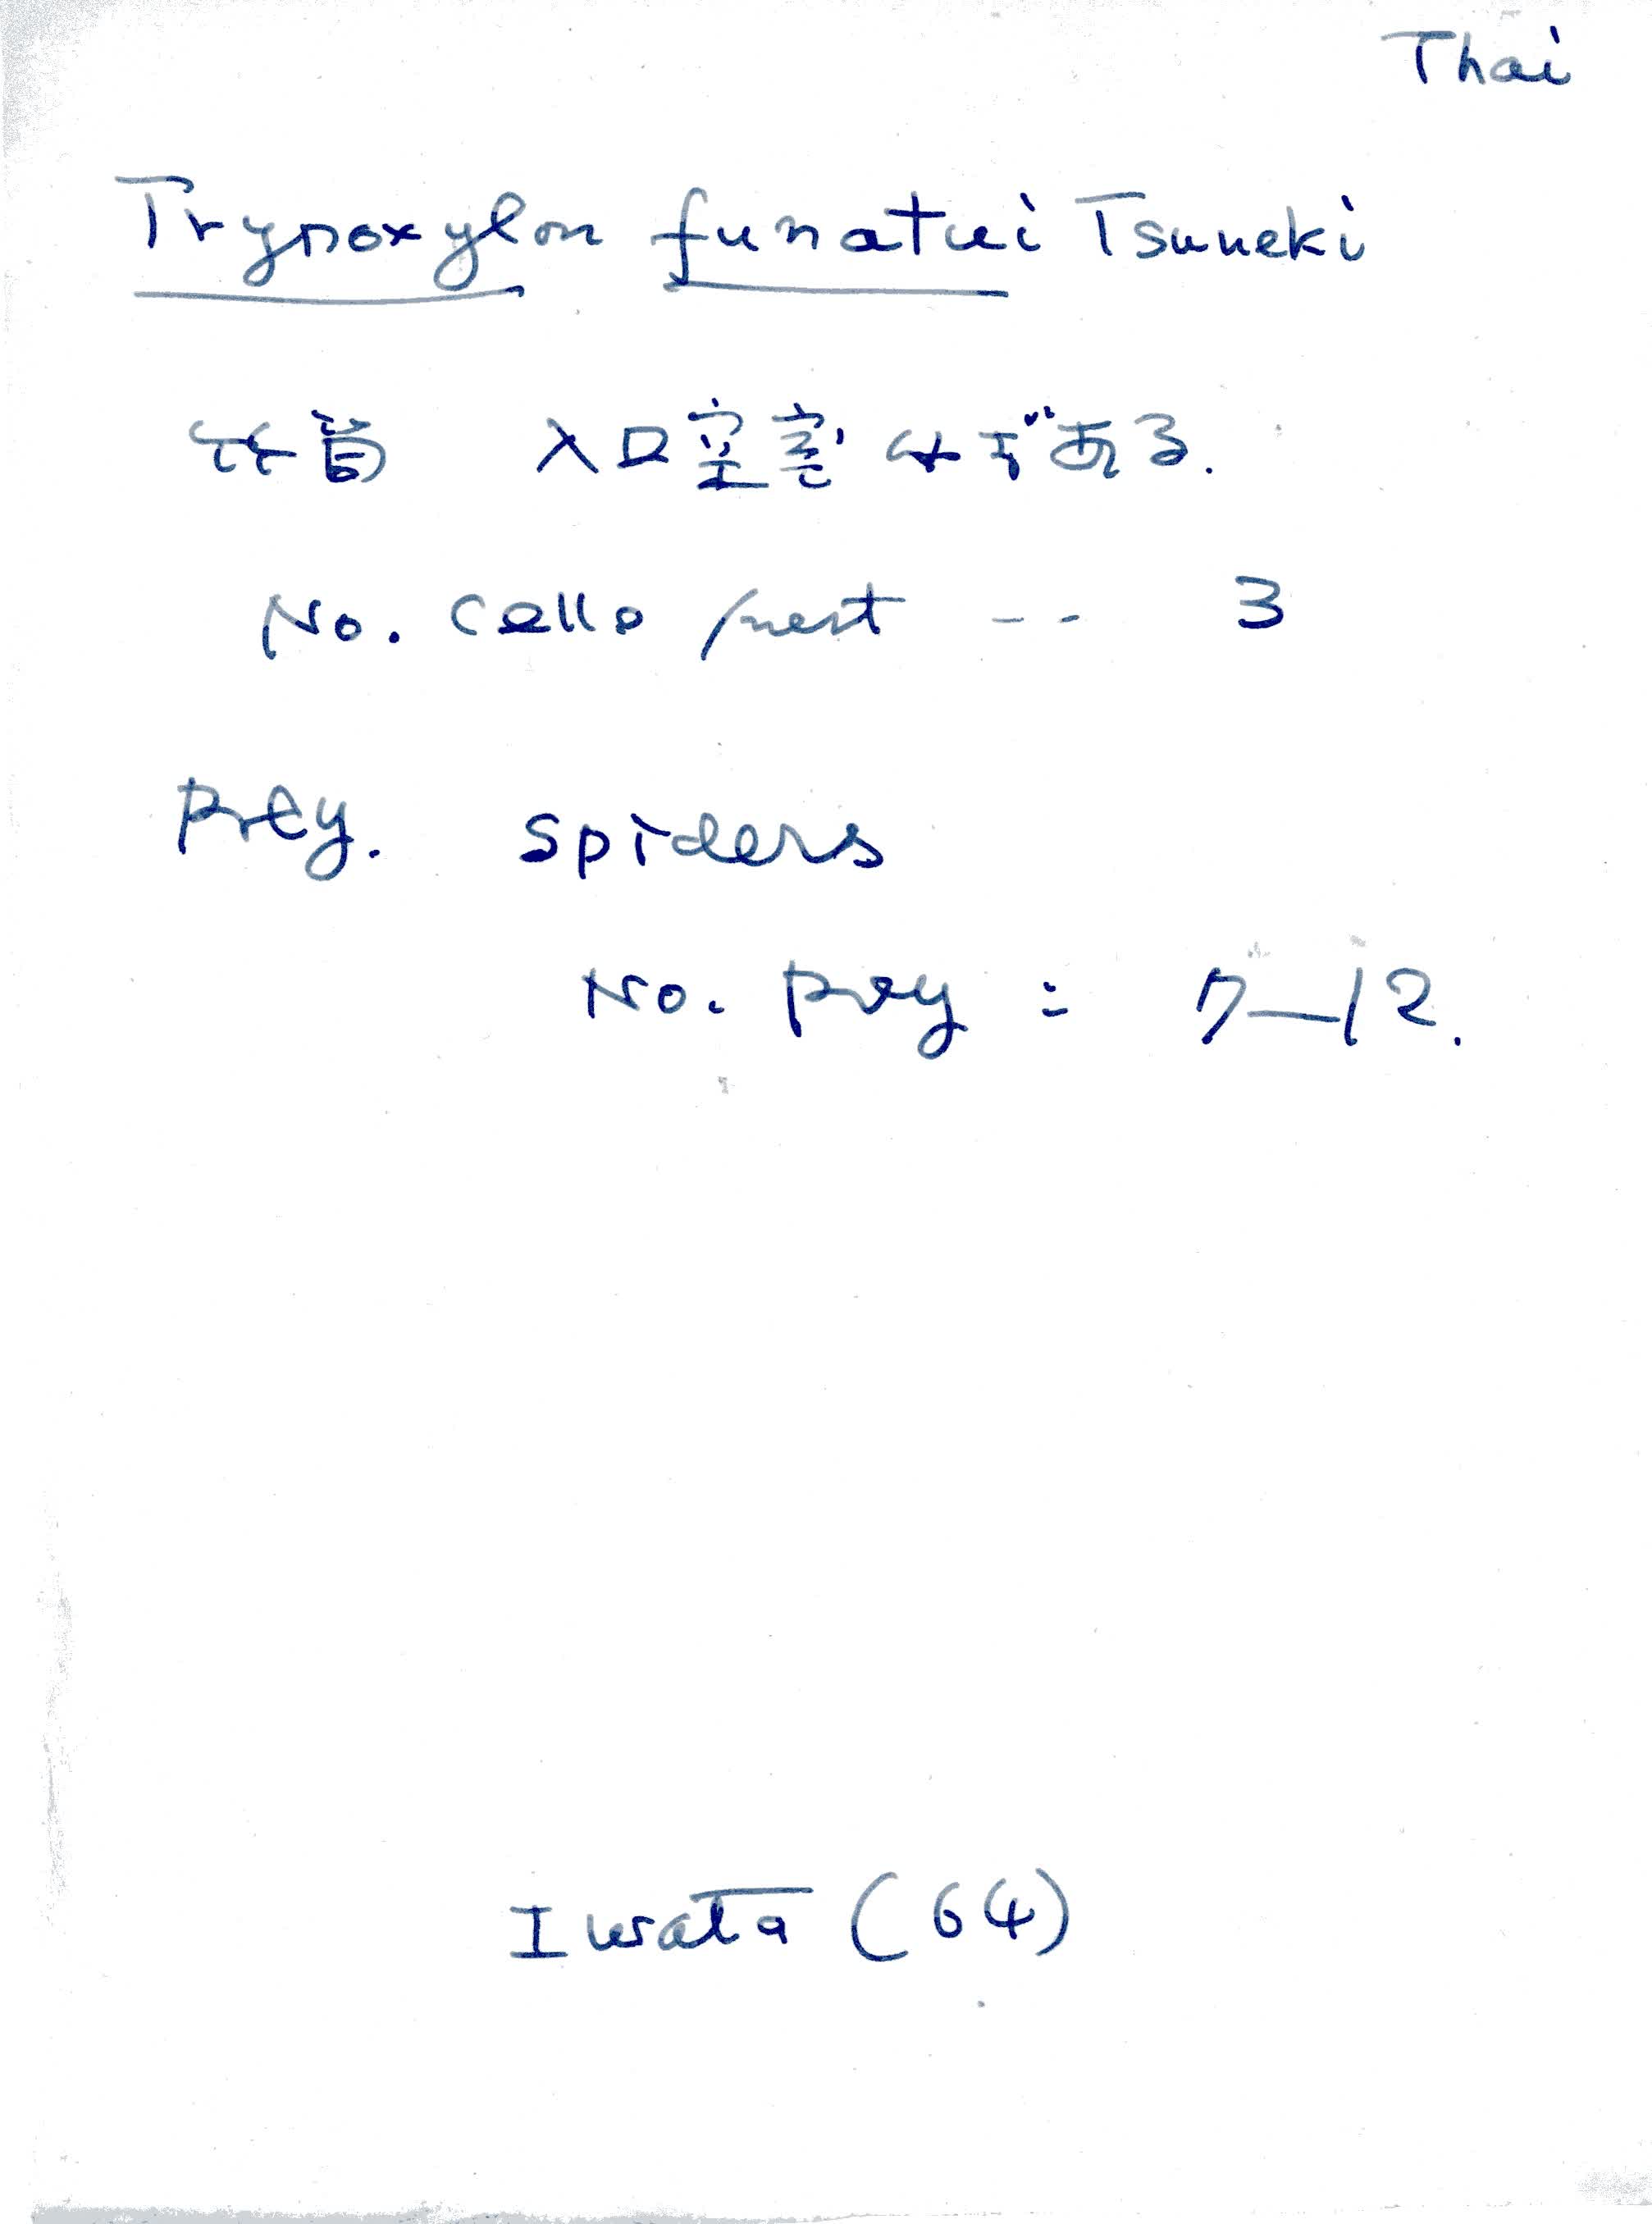 Thai
Trypoxylon funatui Tsuneki
竹筒 入口空室はある.
No. cells /nest -- 3
Prey. spiders
No. prey = 7—12.
Iwata (64)